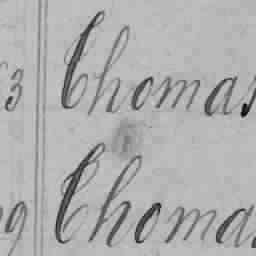 3 Thomas
9 Thomas